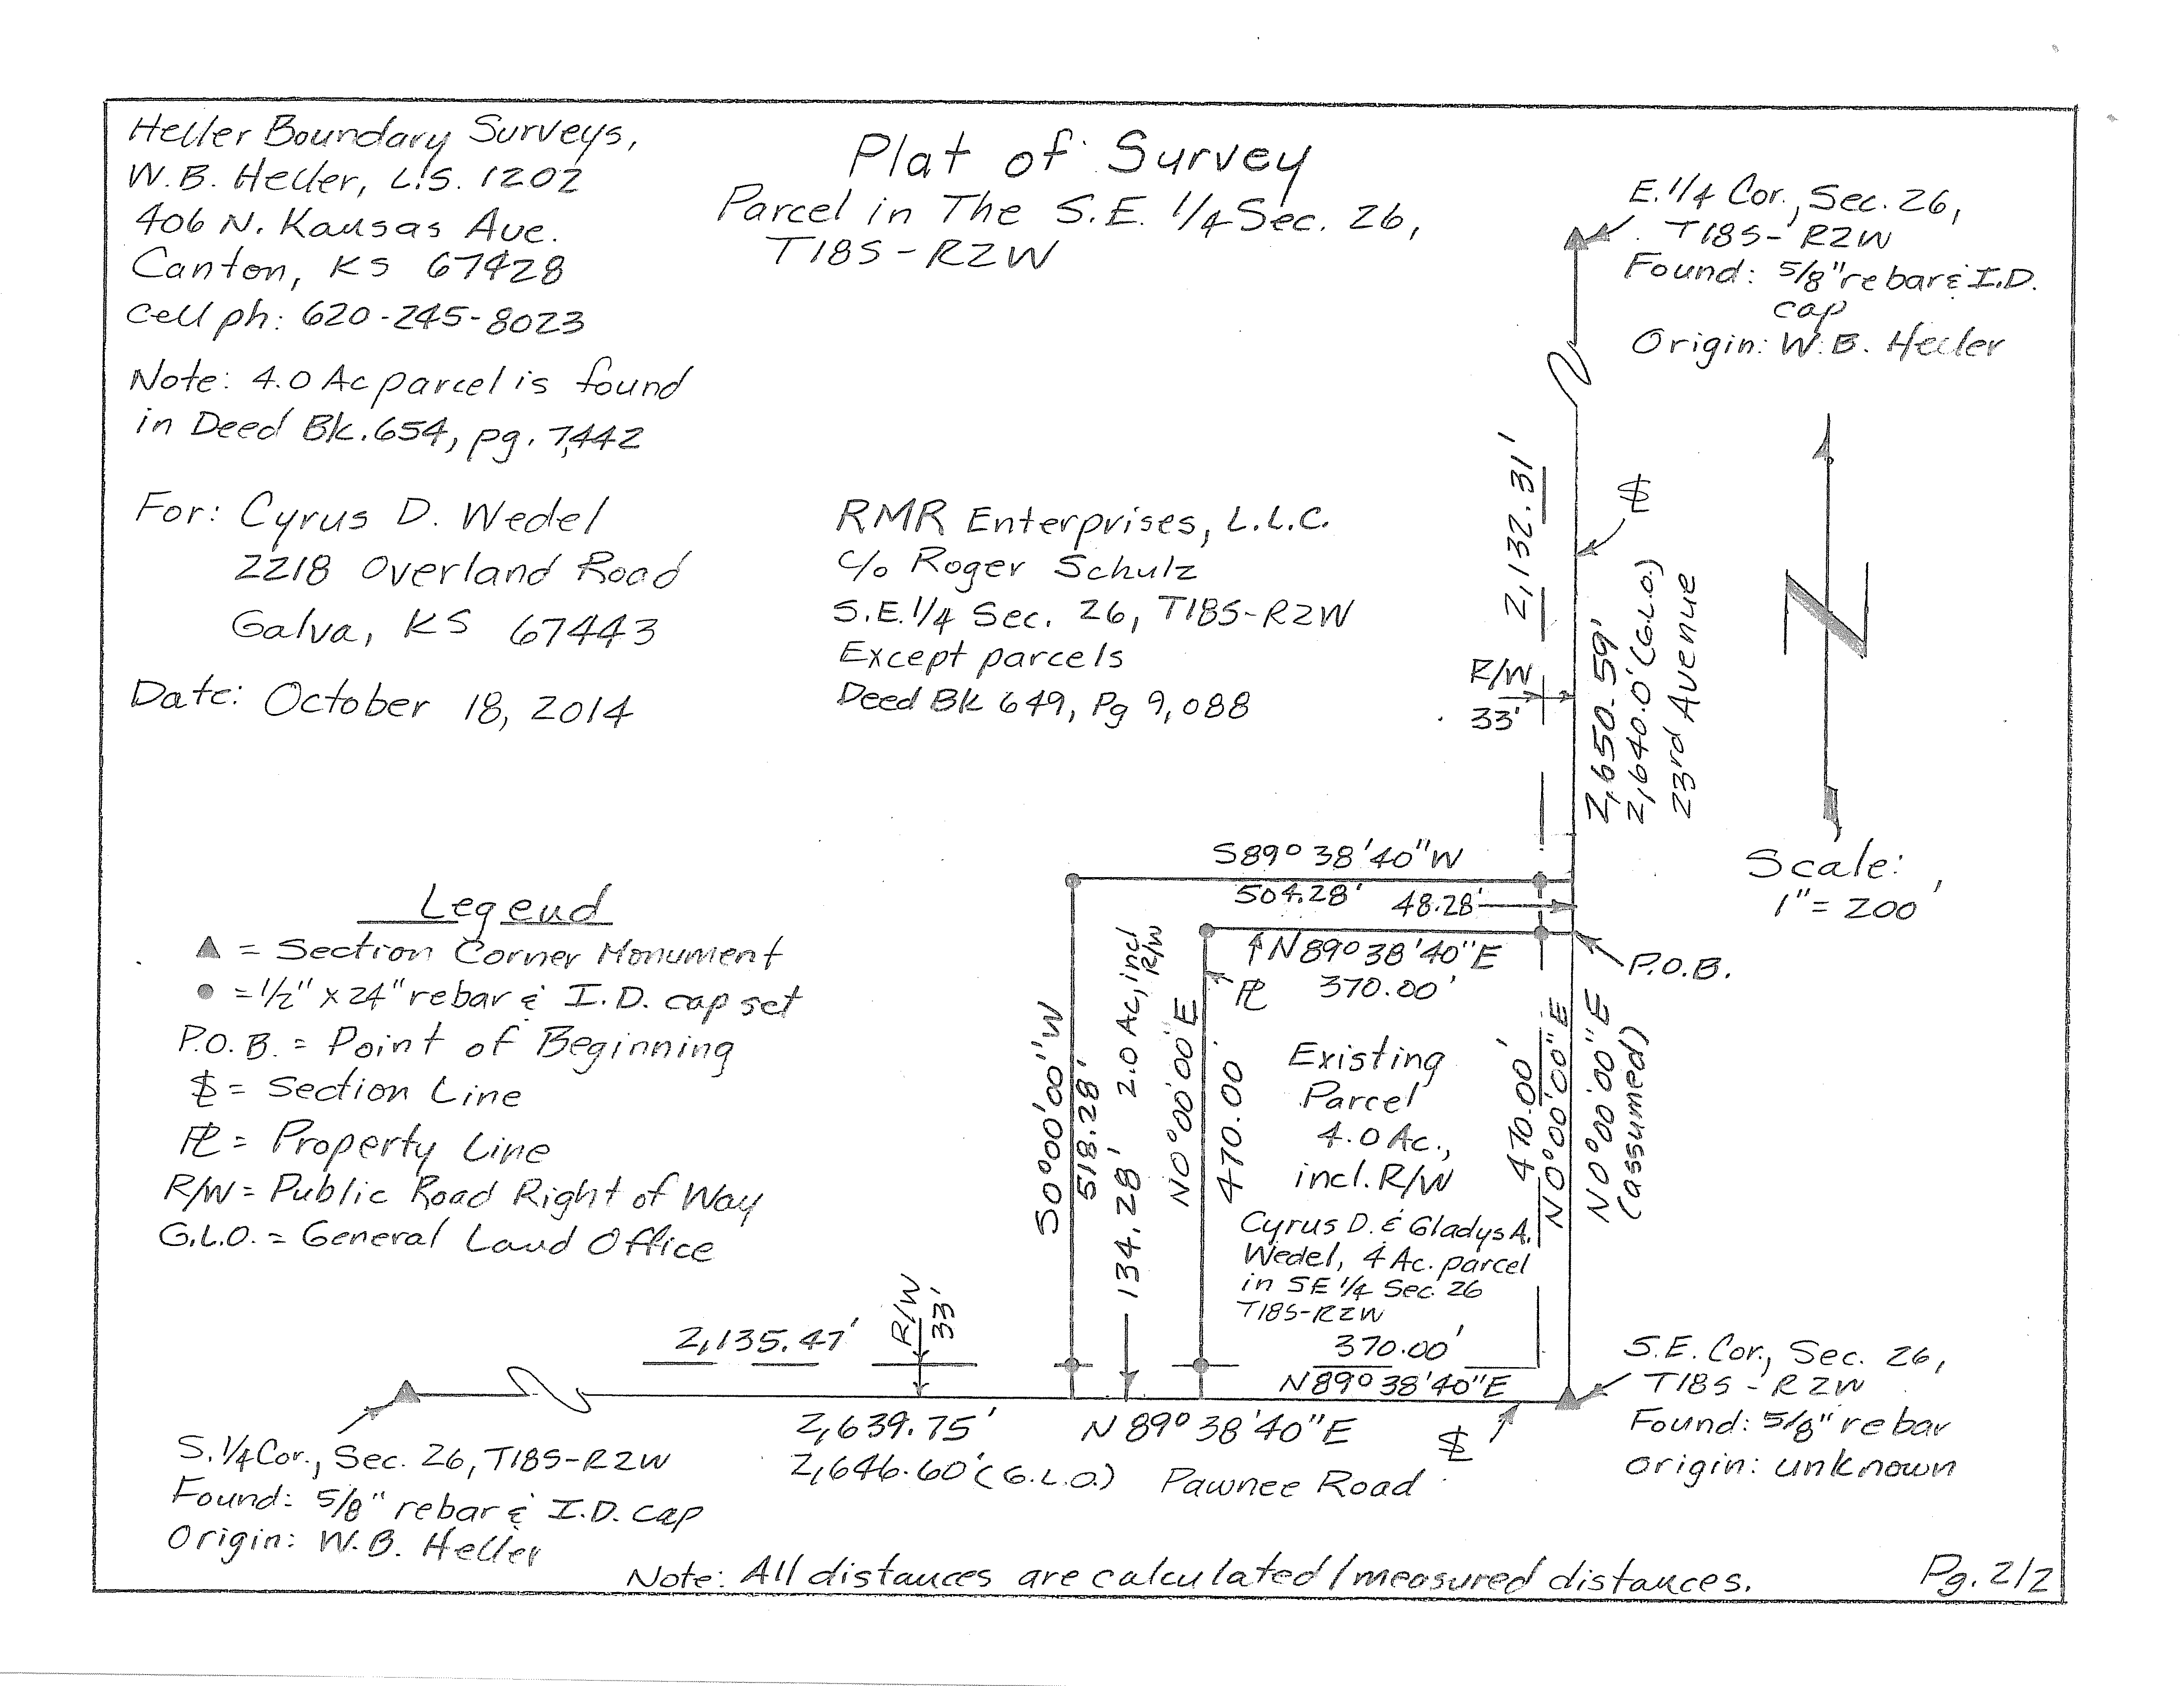 Heller Boundary Surveys,
W.B. Heller, L.S. 1202
406 N. Kansas Ave.
Canton, KS 67428
Cell ph: 620-245-8023
Note: 4.0 Ac parcel is found
in Deed Bk. 654, pg. 7,442
For: Cyrus D. Wedel
2218 Overland Road
Galva, KS 67443
Date: October 18, 2014
Plat of Survey
Parcel in The S.E. 1/4 Sec. 26,
T18S-R2W
RMR Enterprises, L.L.C.
c/o Roger Schulz
S.E. 1/4 Sec. 26, T18S-R2W
Except parcels
Deed Bk 649, Pg 9,088
E. 1/4 Cor., Sec. 26,
T18S-R2W
Found: 5/8" rebar & I.D.
cap
Origin: W.B. Heller
2,132.31'
R/W
33'
2,650.59'
2,640.0' (G.L.O.)
23rd Avenue
Scale:
1" = 200'
Legend
▲ = Section Corner Monument
● = 1/2" x 24" rebar & I.D. cap set
P.O.B. = Point of Beginning
SL = Section Line
PL = Property Line
R/W = Public Road Right of Way
G.L.O. = General Land Office
S89° 38' 40" W
504.28' 48.28'
N89° 38' 40" E
370.00'
PL
P.O.B.
S0°00'00"W
518.28'
134.28' 2.0 Ac, incl
R/W
N0°00'00"E
470.00'
Existing
Parcel
4.0 Ac.,
incl. R/W
Cyrus D. & Gladys A.
Wedel, 4 Ac. parcel
in SE 1/4 Sec. 26
T18S-R2W
370.00'
N89° 38' 40" E
470.00'
N0°00'00"E
N0°00'00"E
(assumed)
2,135.47'
R/W
33'
2,639.75' N 89° 38' 40" E SL
2,646.60' (G.L.O.) Pawnee Road
S.E. Cor., Sec. 26,
T18S-R2W
Found: 5/8" rebar
origin: unknown
S. 1/4 Cor., Sec. 26, T18S-R2W
Found: 5/8" rebar & I.D. cap
Origin: W.B. Heller
Note: All distances are calculated/measured distances.
Pg. 2/2
SL
N